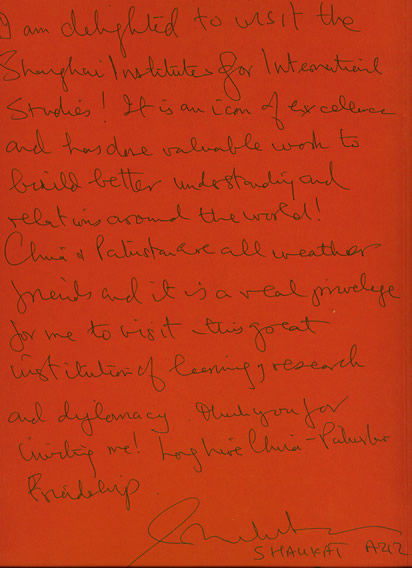 I am delighted to visit the
Shanghai Institutes for International
Studies! It is an icon of excellence
and has done valuable work to
build better understanding and
relations around the world!
China & Pakistan are all weather
friends and it is a real privelege
for me to visit this great
institution of learning, research
and diplomacy. Thank you for
inviting me! Long live China-Pakistan
Friendship.
SHAUKAT AZIZ